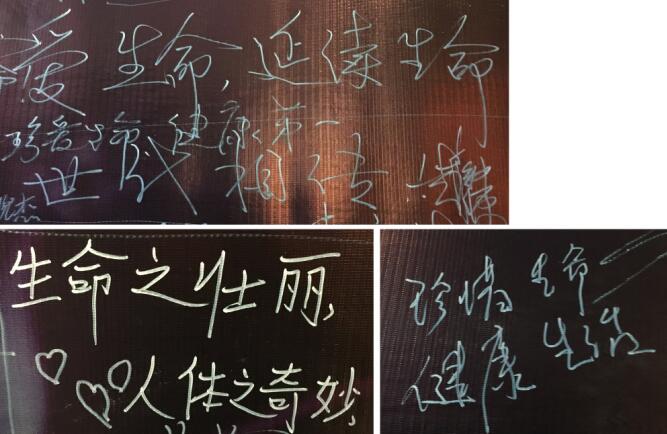 爱生命,延续生命
珍爱生命 健康第一
世代相传
生命之壮丽,
人体之奇妙,
珍惜生命
健康生活